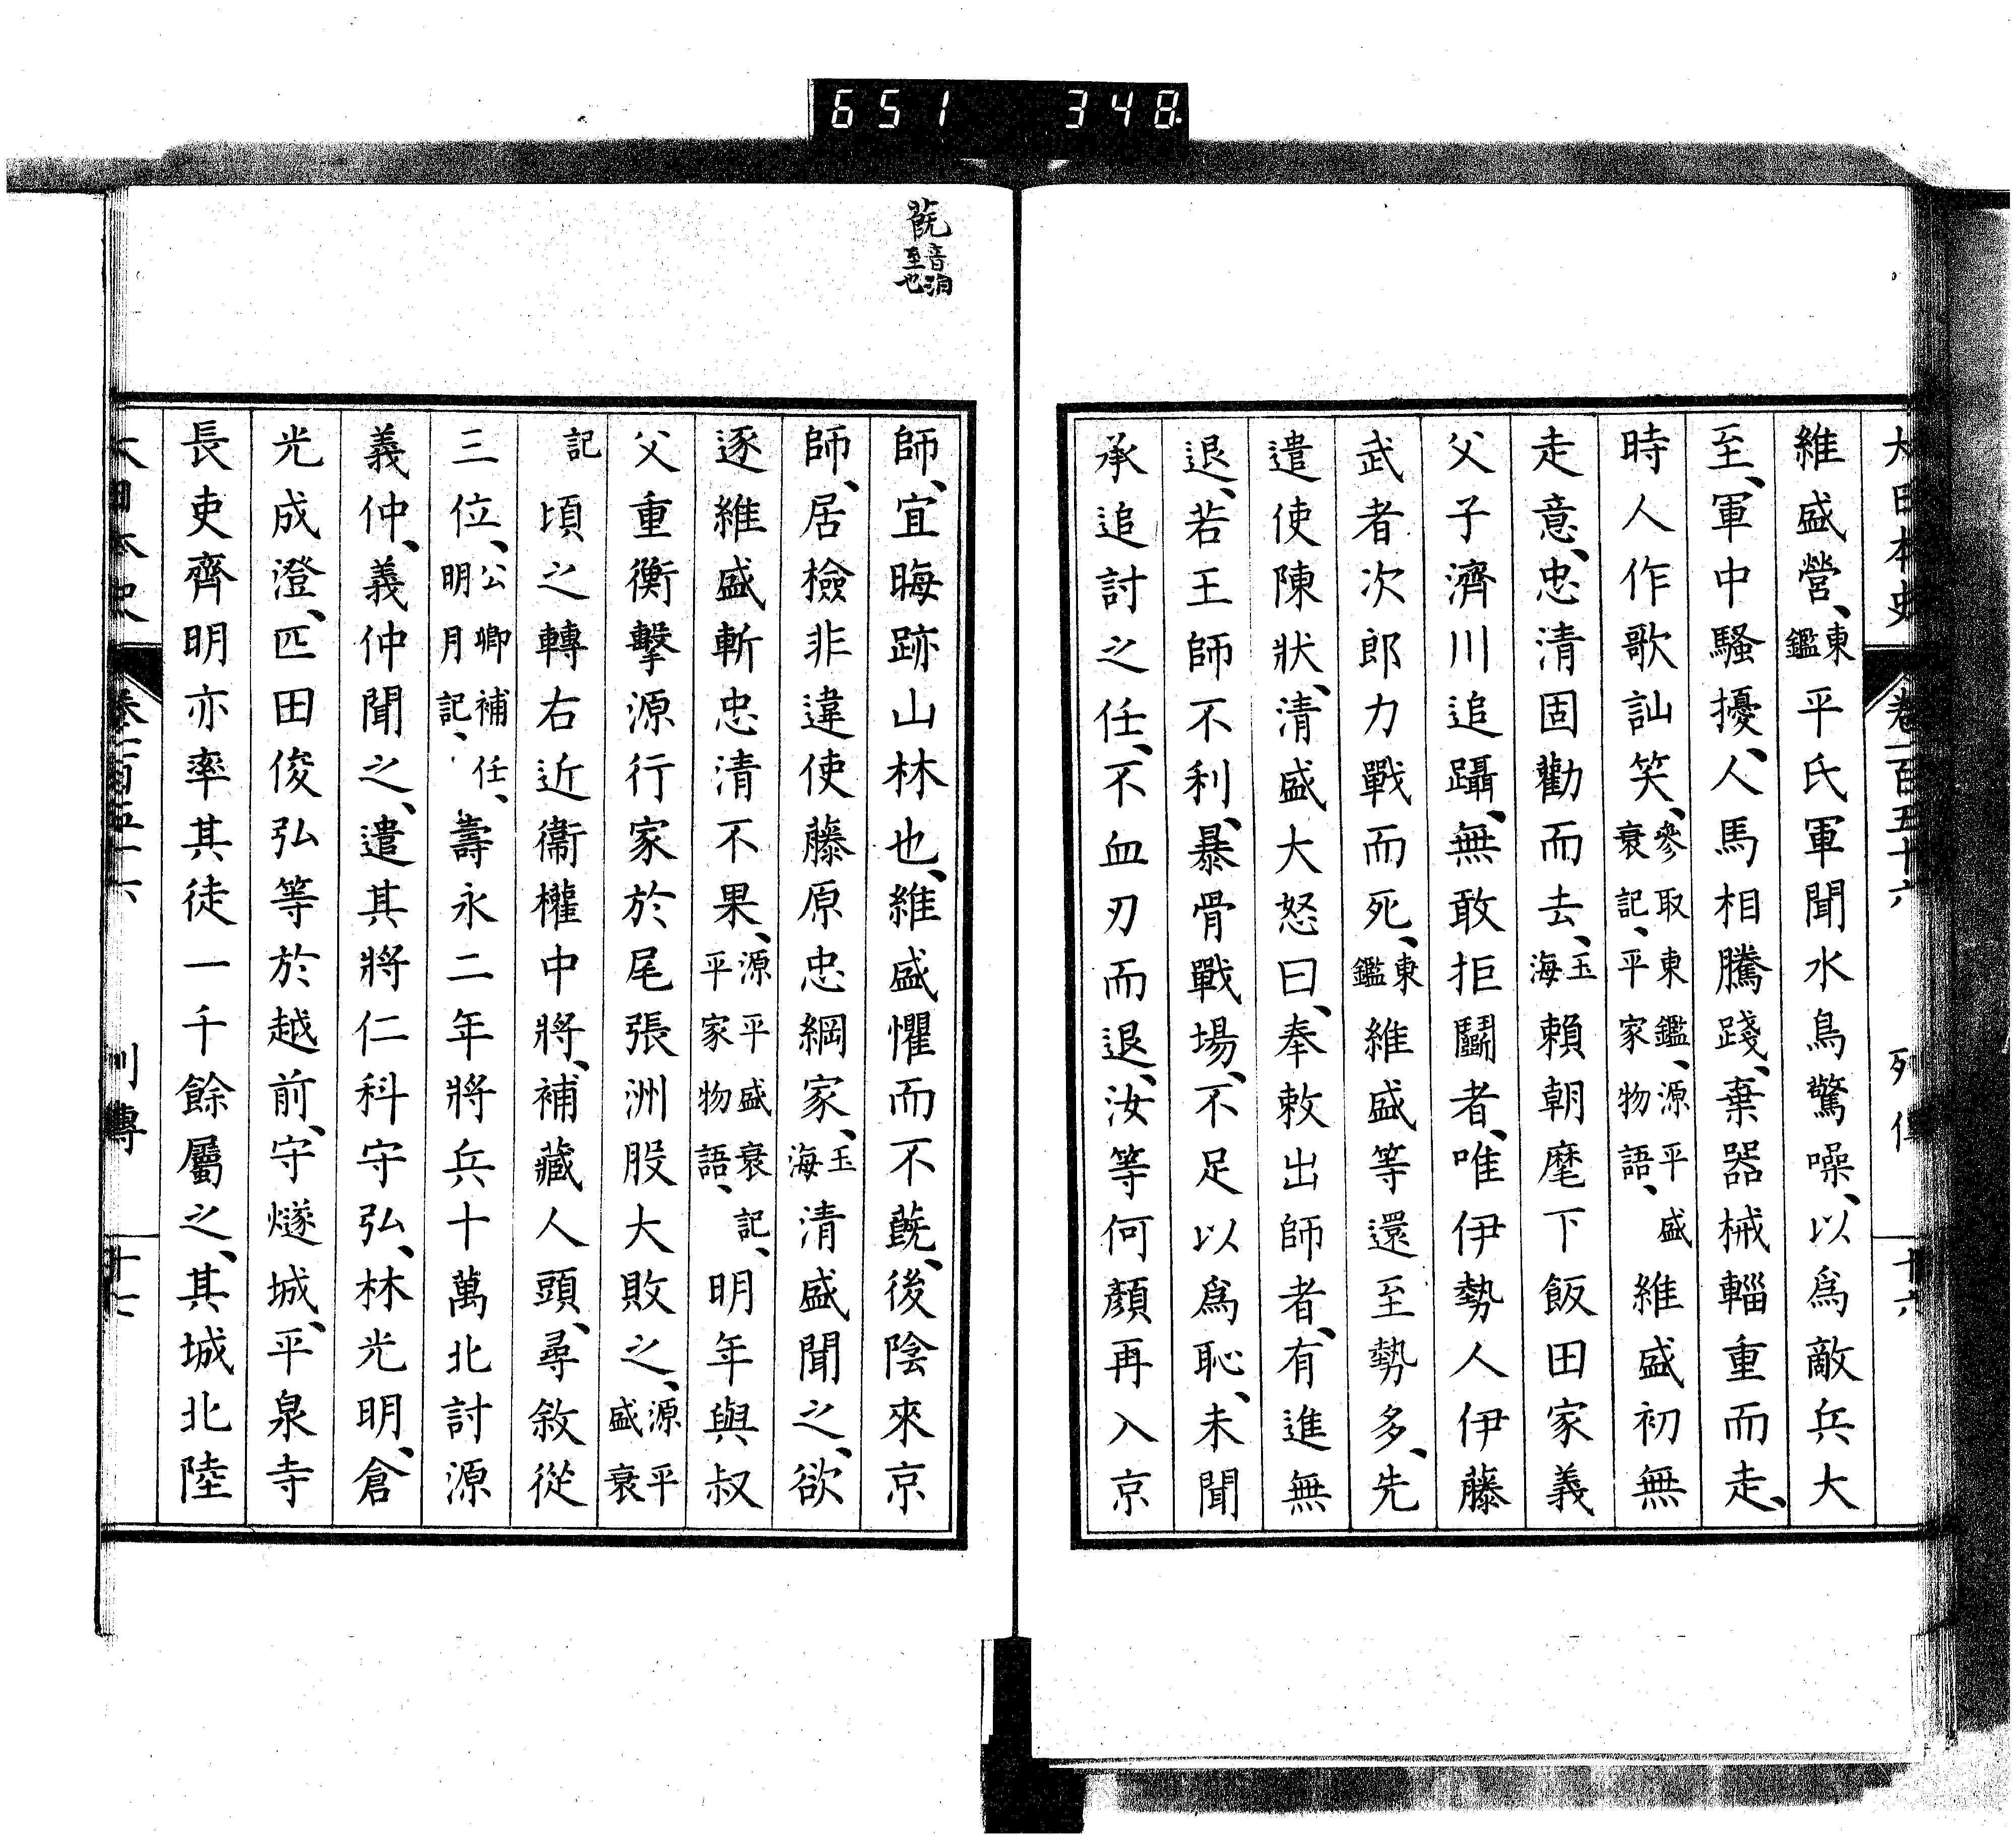 651 348.
大日本史 卷一百五十六 列傳 十六
維盛營、東鑑平氏軍聞水鳥驚噪、以爲敵兵大
至、軍中騷擾、人馬相騰踐、棄器械輜重而走、
時人作歌訕笑、參取東鑑、源平盛衰記、平家物語、維盛初無
走意、忠清固勸而去、玉海賴朝麾下飯田家義
父子濟川追躡、無敢拒鬭者、唯伊勢人伊藤
武者次郎力戰而死、東鑑維盛等還至勢多、先
遣使陳狀、清盛大怒曰、奉敕出師者、有進無
退、若王師不利、暴骨戰場、不足以爲恥、未聞
承追討之任、不血刃而退、汝等何顏再入京
蔇音洎至也
師、宜晦跡山林也、維盛懼而不蔇、後陰來京
師、居檢非違使藤原忠綱家、玉海清盛聞之、欲
逐維盛斬忠清不果、源平盛衰記、平家物語、明年與叔
父重衡擊源行家於尾張洲股大敗之、源平盛衰
記頃之轉右近衞權中將、補藏人頭、尋敘從
三位、公卿補任、明月記、壽永二年將兵十萬北討源
義仲、義仲聞之、遣其將仁科守弘、林光明、倉
光成澄、匹田俊弘等於越前、守燧城、平泉寺
長吏齊明亦率其徒一千餘屬之、其城北陸
大日本史 卷一百五十六 列傳 十七